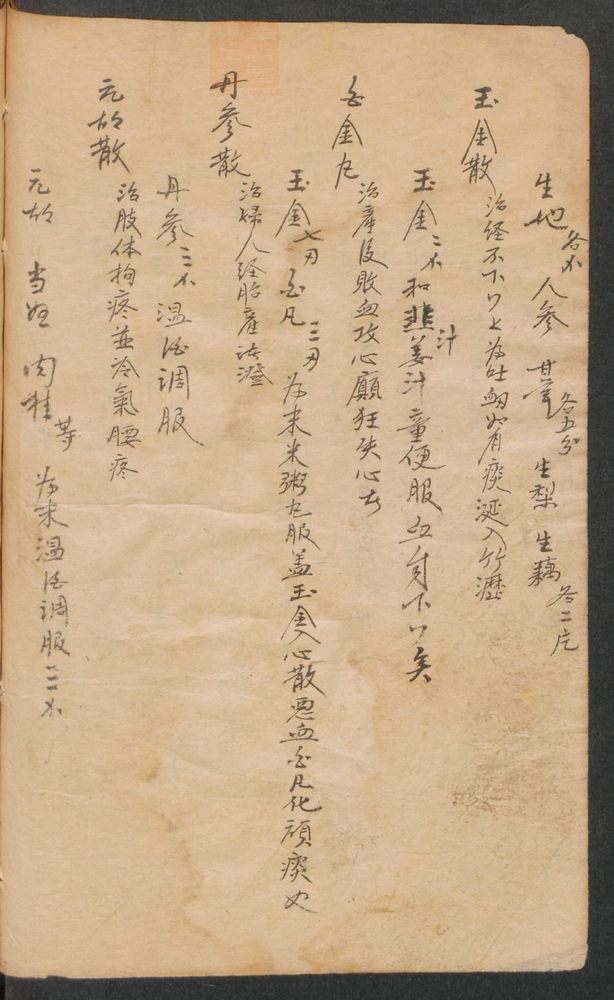 生地各錢 人參 甘草各五分 生梨 生藕各二片
玉金散 治経不下以上為吐衄如有痰涎入竹瀝
玉金二錢 和韭汁姜汁童便服血自下矣
白金丸 治產後敗血攻心癲狂失心者
玉金七刃 白凡三刃 為末米粥丸服盖玉金入心散惡血白凡化頑痰也
丹參散 治婦人経胎產諸證
丹參二錢 溫酒調服
元胡散 治肢体拘疼並冷氣腰疼
元胡 当归 肉桂 等 為末溫酒調服二錢